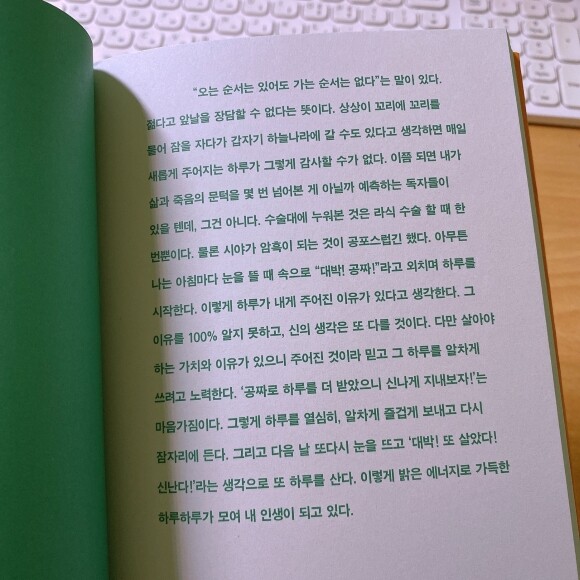 “오는 순서는 있어도 가는 순서는 없다”는 말이 있다.
젊다고 앞날을 장담할 수 없다는 뜻이다. 상상이 꼬리에 꼬리를
물어 잠을 자다가 갑자기 하늘나라에 갈 수도 있다고 생각하면 매일
새롭게 주어지는 하루가 그렇게 감사할 수가 없다. 이쯤 되면 내가
삶과 죽음의 문턱을 몇 번 넘어본 게 아닐까 예측하는 독자들이
있을 텐데, 그건 아니다. 수술대에 누워본 것은 라식 수술 할 때 한
번뿐이다. 물론 시야가 암흑이 되는 것이 공포스럽긴 했다. 아무튼
나는 아침마다 눈을 뜰 때 속으로 “대박! 공짜!”라고 외치며 하루를
시작한다. 이렇게 하루가 내게 주어진 이유가 있다고 생각한다. 그
이유를 100% 알지 못하고, 신의 생각은 또 다를 것이다. 다만 살아야
하는 가치와 이유가 있으니 주어진 것이라 믿고 그 하루를 알차게
쓰려고 노력한다. ‘공짜로 하루를 더 받았으니 신나게 지내보자!’는
마음가짐이다. 그렇게 하루를 열심히, 알차게 즐겁게 보내고 다시
잠자리에 든다. 그리고 다음 날 또다시 눈을 뜨고 ‘대박! 또 살았다!
신난다!’라는 생각으로 또 하루를 산다. 이렇게 밝은 에너지로 가득한
하루하루가 모여 내 인생이 되고 있다.